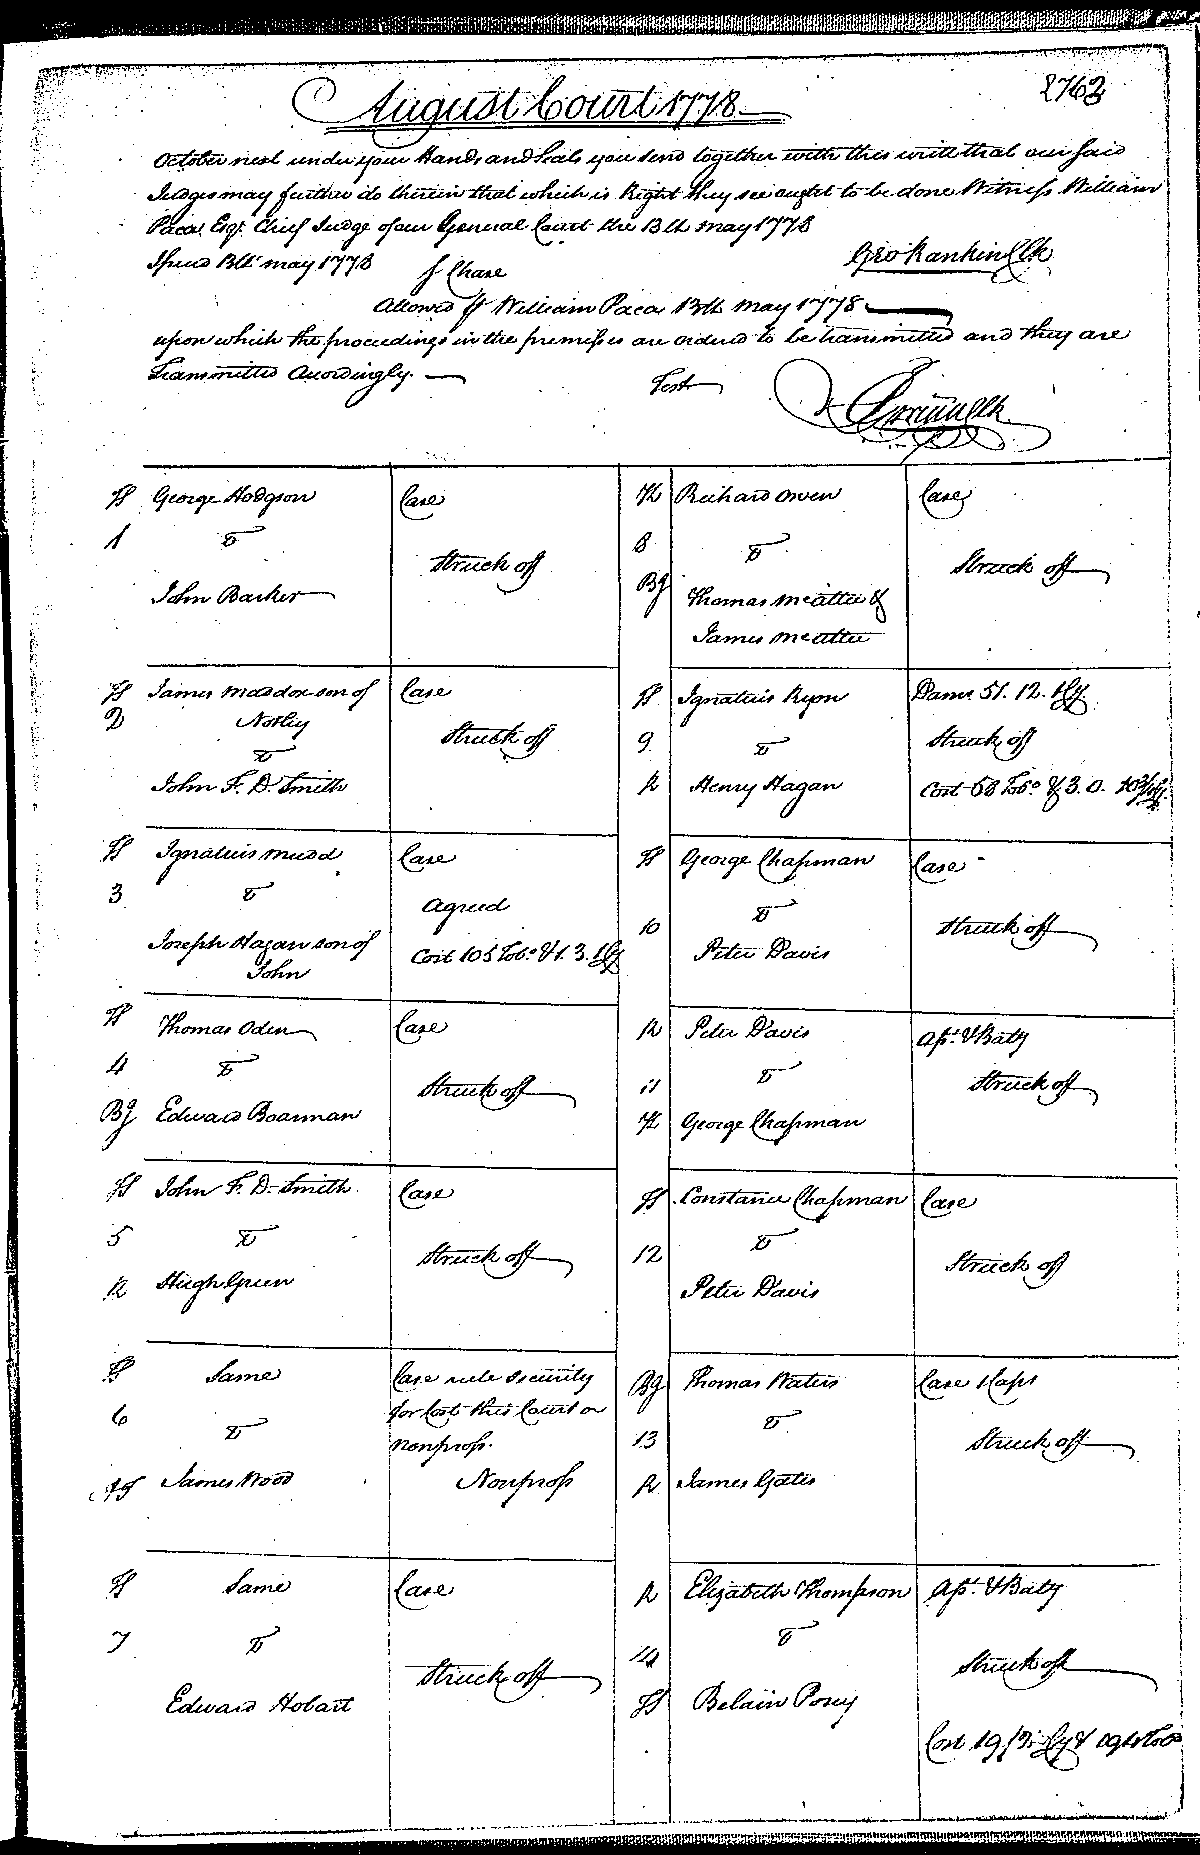 August Court 1778
2762
October next under your Hands and Seals you send together with this writt that our said
Judges may further do therein that which is Right they see ought to be done Witness William
Paca Esqr. Chief Judge of our General Court the 13th may 1778
Issued 13th may 1778
Geo Rankin Clk
S Chase
Allowed William Paca 13th may 1778
upon which the proceedings in the premises are ordered to be transmitted and they are
Transmitted Accordingly.
Test
Clk
George Hodgson
Case
1
v
Struck off
John Barker
James Maddox son of
Case
2
Notley
Struck off
v
John F. D. Smith
Ignatius Mudd
Case
3
v
Agreed
Joseph Hagan son of
Cost 105 Tobo. & 1. 3.
John
Thomas Oden
Case
4
v
Struck off
BJ
Edward Boarman
John F. D. Smith
Case
5
v
Struck off
R
Hugh Green
Same
Case rule security
6
v
for Cost this Court or
nonpross.
James Wood
Nonpross
Same
Case
7
v
Struck off
Edward Hobart
Richard Owen
Case
8
v
Struck off
BJ
Thomas McAttee &
James McAttee
Ignatius Ryon
Dams 51. 12.
9
v
Struck off
R
Henry Hagan
Cost 68 Tobo. & 3. 0.
George Chapman
Case
10
v
Struck off
Peter Davis
R
Peter Davis
Apt. & Baty
11
v
Struck off
George Chapman
Constance Chapman
Case
12
v
Struck off
Peter Davis
BJ
Thomas Waters
Case
13
v
Struck off
R
James Gates
R
Elizabeth Thompson
Apt. & Baty
14
v
Struck off
Belain Posey
Cost 19/3 &